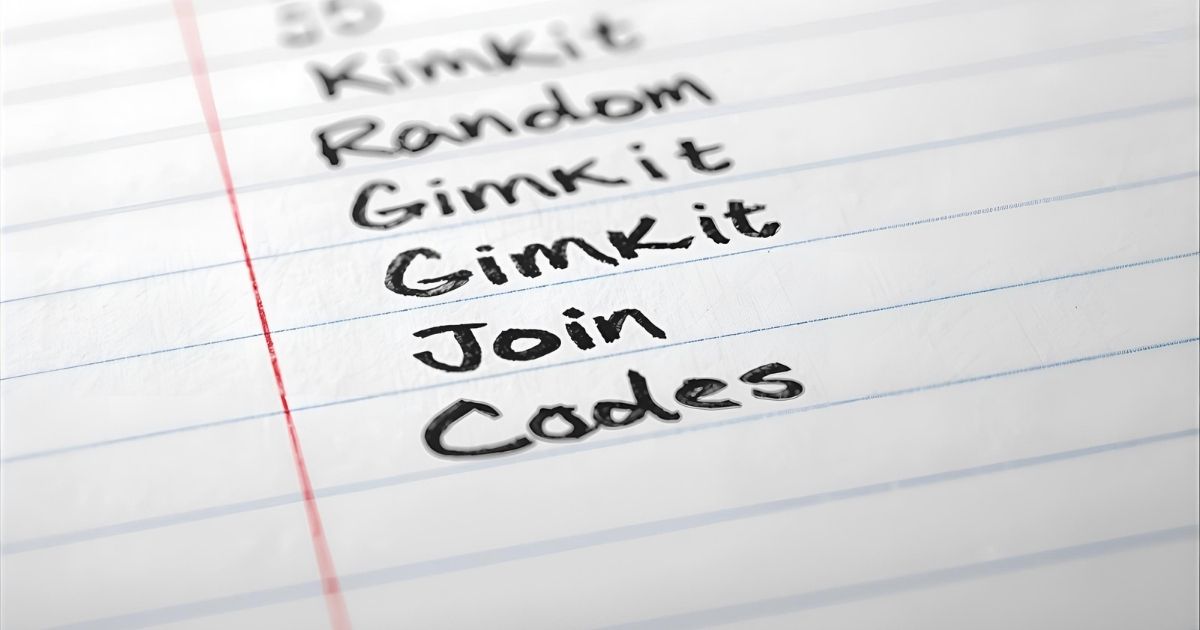 Kimkit
Random
Gimkit
Gimkit
Join
Codes